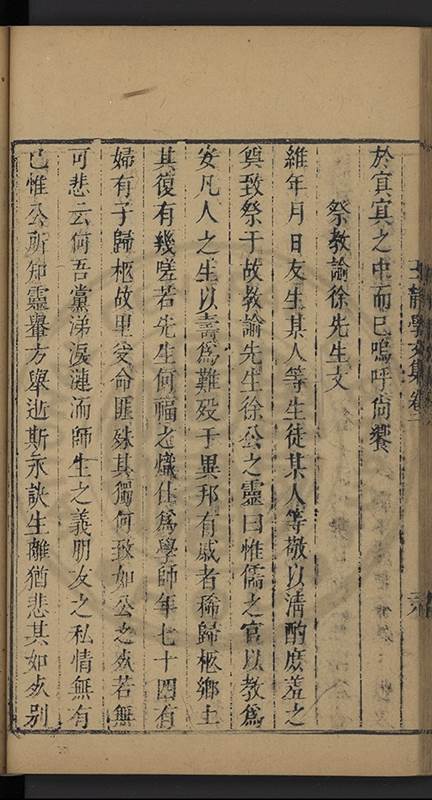 王靜學文集卷
於冥冥之中而已嗚呼尚饗
祭教諭徐先生文
維年月日友生某人等生徒某人等敬以清酌庶羞之
奠致祭于故教諭先生徐公之靈曰惟儒之官以教爲
安凡人之生以壽爲難歿于異邦有戚者稀歸柩鄉土
其復有幾嗟若先生何福之熾仕爲學師年七十四有
婦有子歸柩故里受命匪殊其獨何致如公之䢿若無
可悲云何吾黨涕淚漣洏師生之義朋友之私情無有
已惟公所知靈轝方舉逝斯永訣生離猶悲其如死别